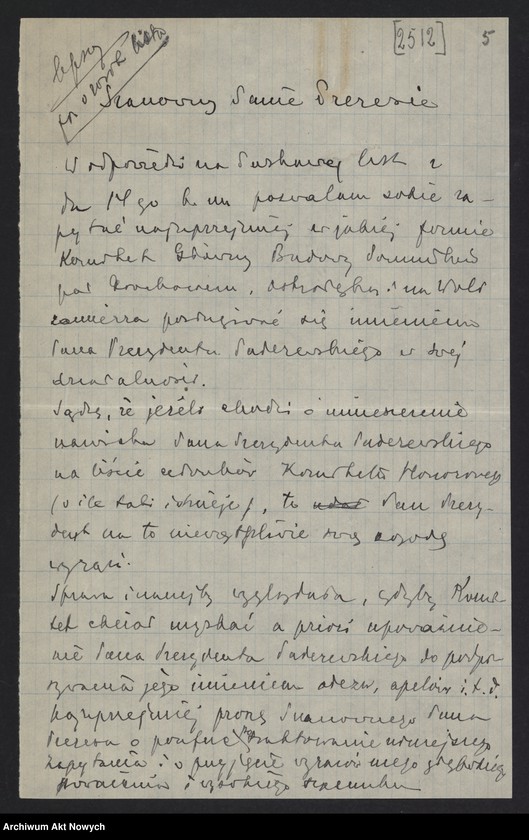 [2512] 5
Szanowny Panie Prezesie
W odpowiedzi na Pański list z
dn 14 go b. m. pozwalam sobie za-
pytać najuprzejmiej w jakiej formie
Komitet Główny Budowy Pomników
pod Grochowem, Ostrołęką i na Woli
zamierza posługiwać się imieniem
Pana Prezydenta Paderewskiego w swej
działalności.
Sądzę, że jeżeli chodzi o umieszczenie
nazwiska Pana Prezydenta Paderewskiego
na liście członków Komitetu Honorowego
(o ile taki istnieje), to Pan Prezy-
dent na to niewątpliwie swą zgodę
wyrazi.
Sprawa inaczej by wyglądała, gdyby Komi-
tet chciał uzyskać a priori upoważnie-
nie Pana Prezydenta Paderewskiego do podpi-
sywania jego imieniem odezw, apelów i.t.d.
Najuprzejmiej proszę Szanownego Pana
Prezesa o poufne traktowanie niniejszego
zapytania i o przyjęcie wyrazów mego głębokiego
poważania i wysokiego szacunku
Archiwum Akt Nowych